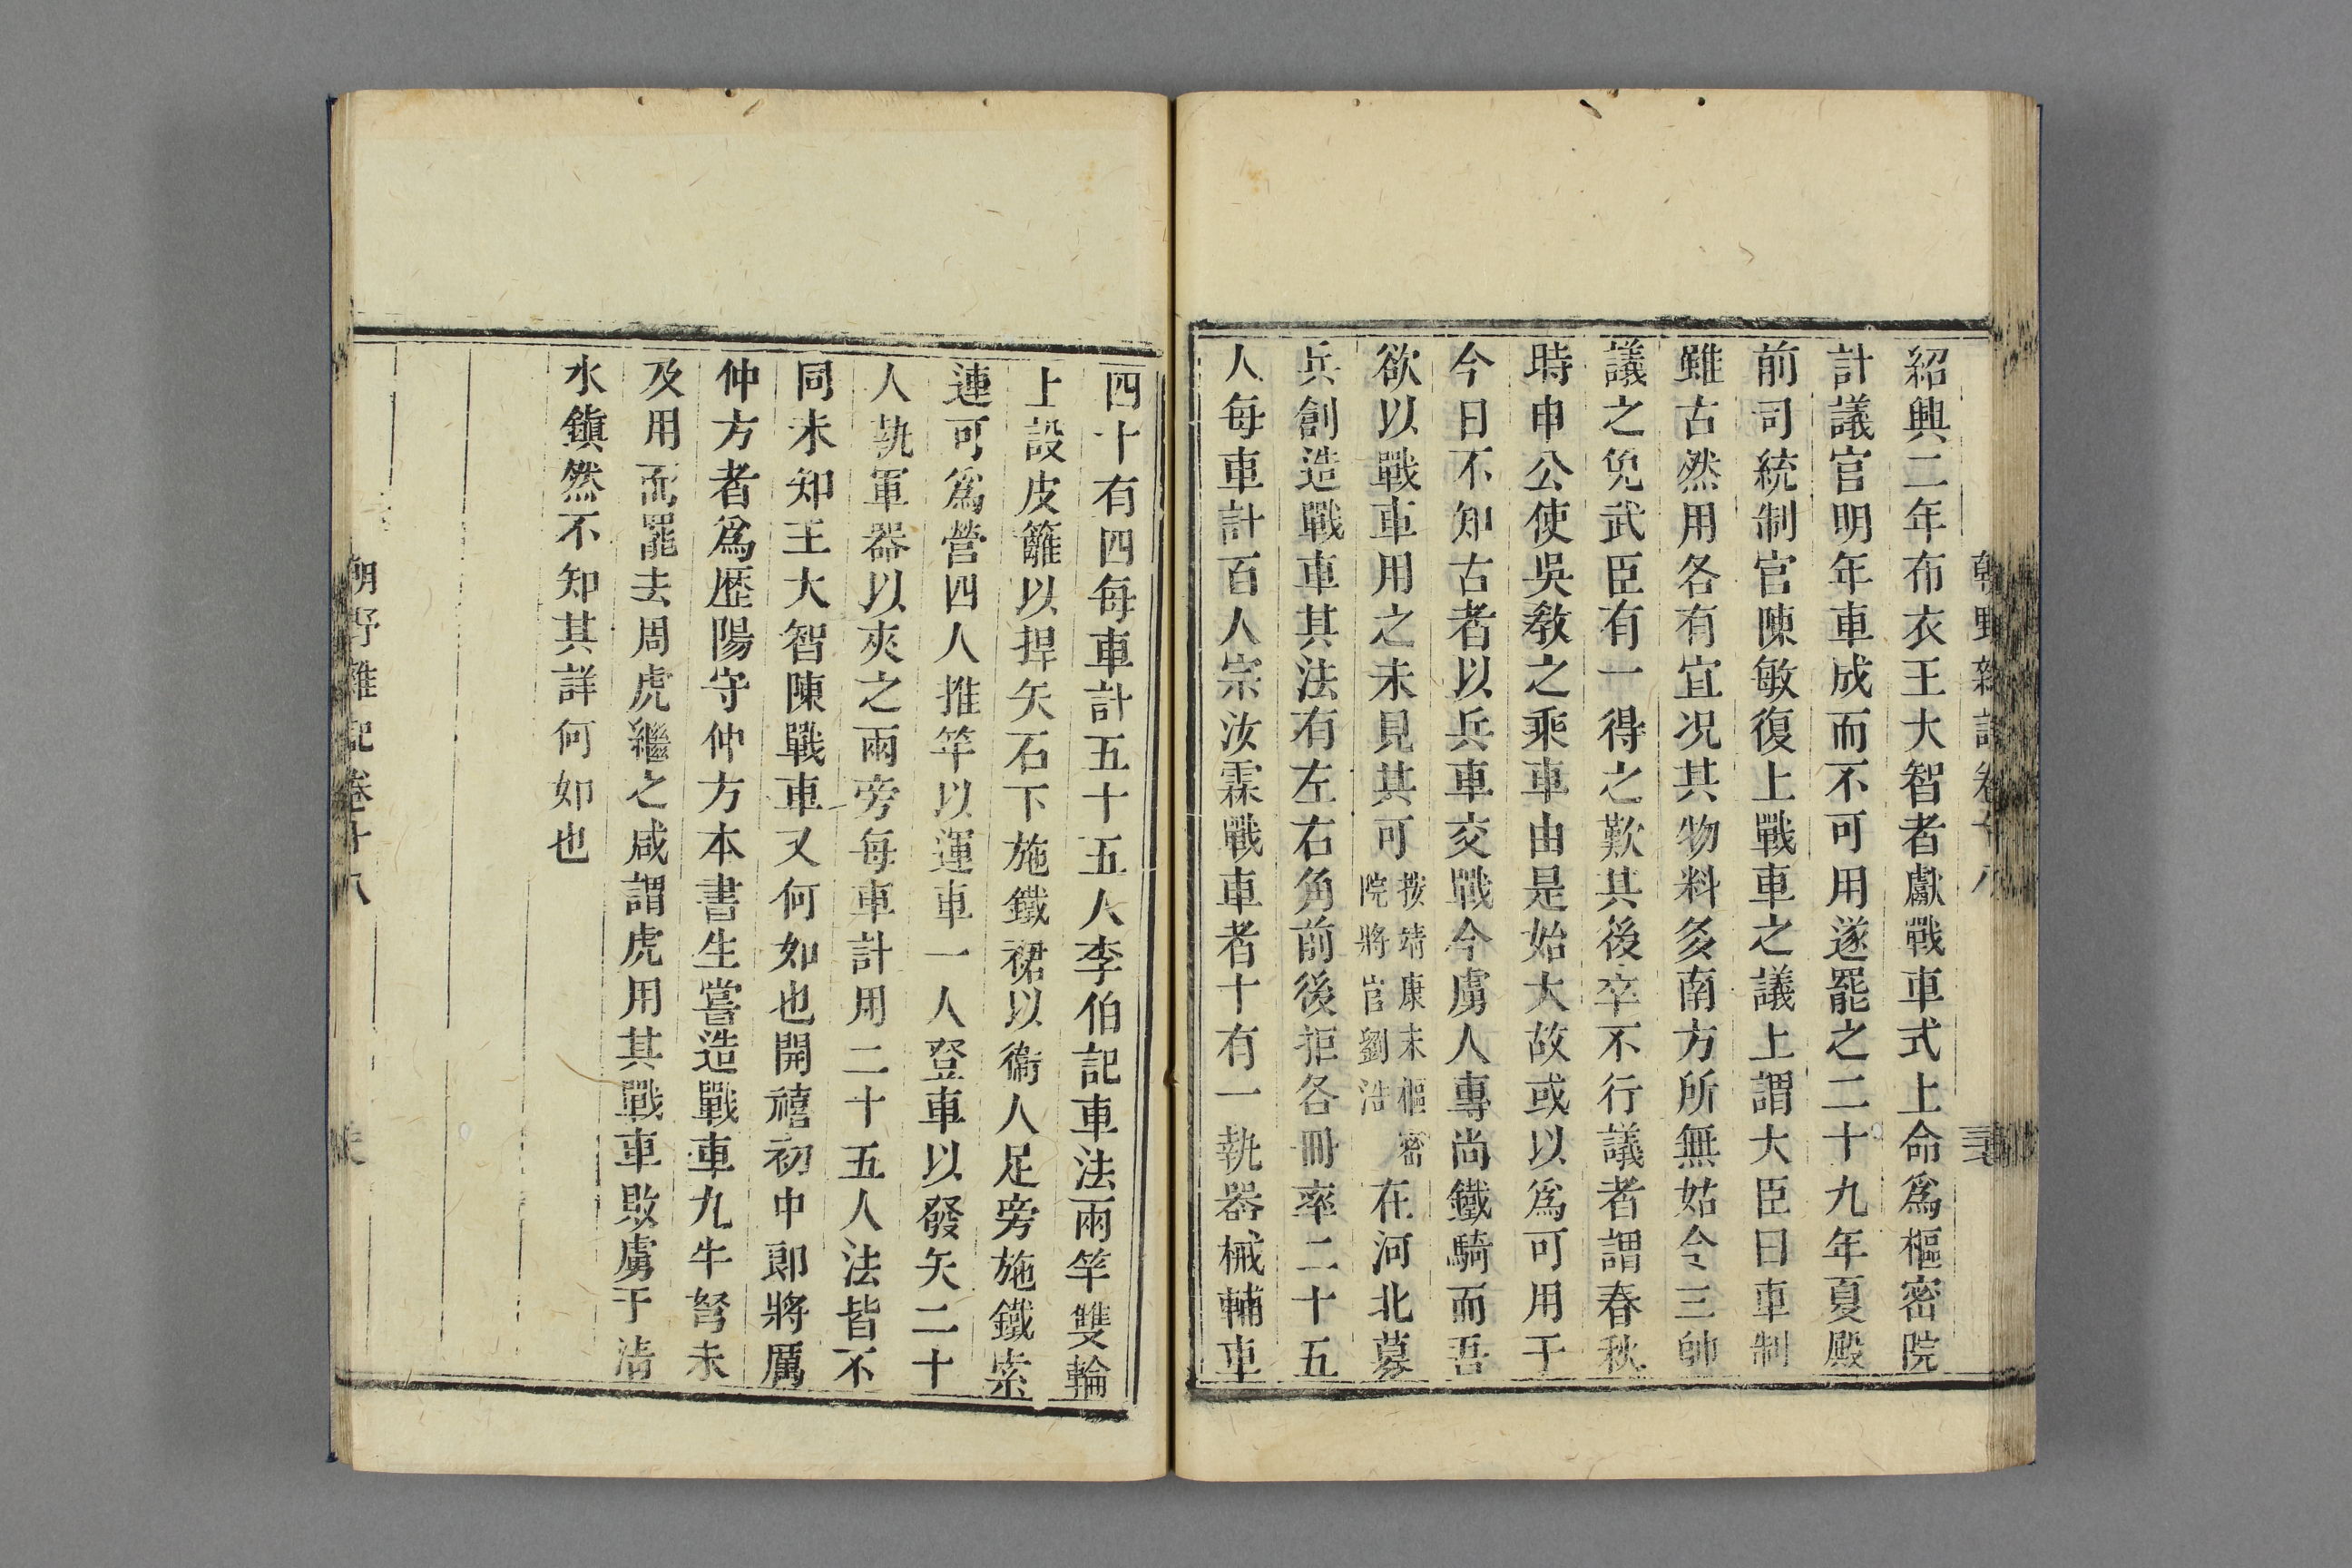 紹興二年布衣王大智者獻戰車式上命爲樞密院
計議官明年車成而不可用遂罷之二十九年夏殿
前司統制官陳敏復上戰車之議上謂大臣曰車制
雖古然用各有宜况其物料多南方所無姑令三帥
議之免武臣有一得之歎其後卒不行議者謂春秋
時申公使吳敎之乘車由是始大故或以爲可用于
今日不知古者以兵車交戰今虜人專尚鐵騎而吾
欲以戰車用之未見其可按靖康末樞密院將官劉浩在河北募
兵創造戰車其法有左右角前後拒各冊率二十五
人每車計百人宗汝霖戰車者十有一執器械輔車
四十有四每車計五十五人李伯記車法兩竿雙輪
上設皮籬以捍矢石下施鐵裙以衞人足旁施鐵索
連可爲營四人推竿以運車一人登車以發矢二十
人執軍器以夾之兩旁每車計用二十五人法皆不
同未知王大智陳戰車又何如也開禧初中郎將厲
仲方者爲歷陽守仲方本書生嘗造戰車九牛弩未
及用而罷去周虎繼之咸謂虎用其戰車敗虜于清
水鎭然不知其詳何如也
朝野雜記卷十八